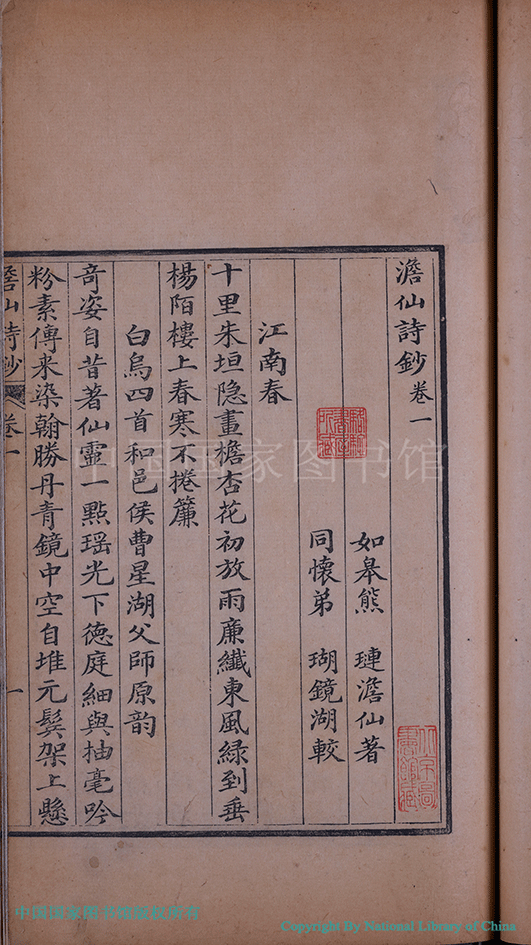 澹仙詩鈔卷一
如皋熊 璉澹仙著
同懷弟 瑚鏡湖較
江南春
十里朱垣隐畫檐杏花初放雨廉纖東風綠到垂
楊陌樓上春寒不捲簾
白烏四首和邑侯曹星湖父師原韵
奇姿自昔著仙靈一點瑶光下德庭細與抽毫吟
粉素傳来染翰勝丹青鏡中空自堆元鬓架上懸
澹仙詩鈔 卷一 一
中国国家图书馆
中国国家图书馆版权所有
Copyright By National Library of China